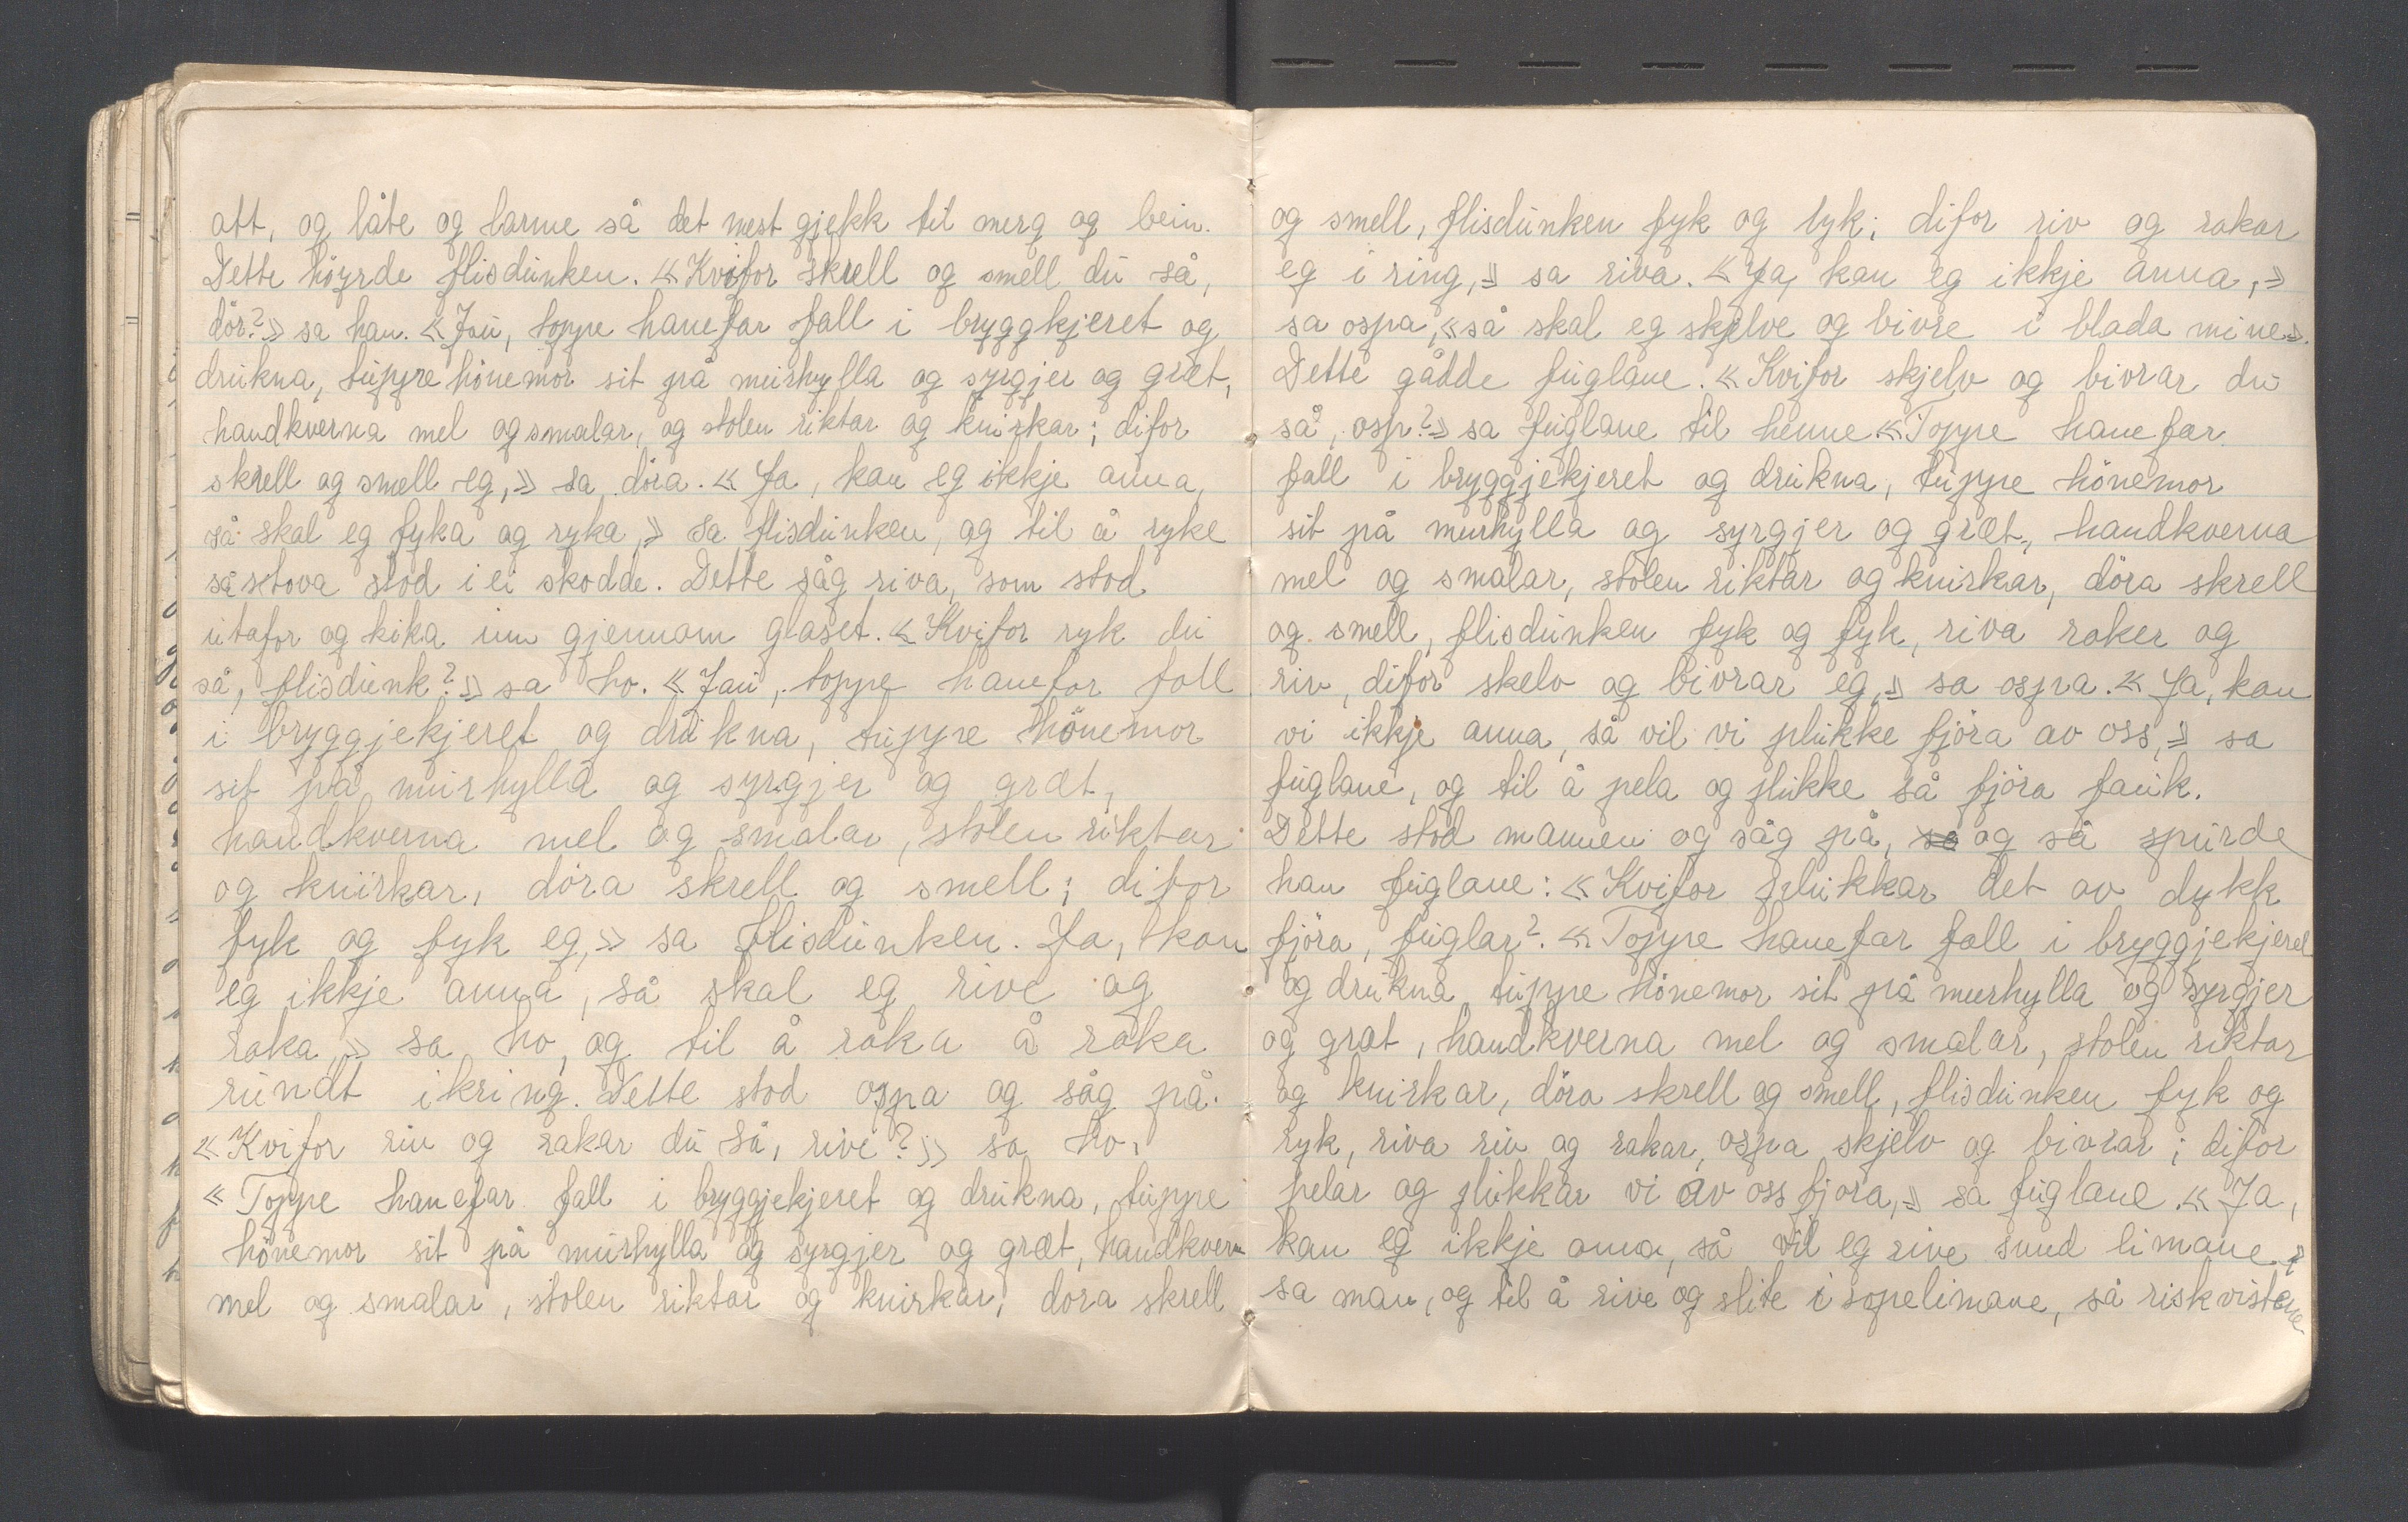 att, og låte og larme så det nest gjekk til merg og bein.
Dette höyrde flisdunken. «Kvifor skrell og smell du så,
dör?» sa han. «Jau, toppe hanefar fall i bryggkjeret og
drukna, tuppe hönemor sit på murhylla og syrgjer og græt,
handkverna mel og smalar, og stolen riktar og knirkar; difor
skrell og smell eg,» sa döra. «Ja, kan eg ikkje anna,
så skal eg fyka og ryka,» sa flisdunken, og til å ryke
så stova stod i ei skodde. Dette såg riva, som stod
utafor og kika inn gjennom glaset. «Kvifor ryk du
så, flisdunk?» sa ho. «Jau, toppe hanefar fall
i bryggjekjeret og drukna, tuppe hönemor
sit på murhylla og syrgjer og græt,
handkverna mel og smalar, stolen riktar
og knirkar, döra skrell og smell; difor
fyk og fyk eg,» sa flisdunken. Ja, kan
eg ikkje anna, så skal eg rive og
raka,» sa ho, og til å raka å raka
rundt ikring. Dette stod ospa og såg på.
«Kvifor riv og rakar du så, rive?» sa ho.
«Toppe hanefar fall i bryggjekjeret og drukna, tuppe
hönemor sit på murhylla og syrgjer og græt, handkvern
mel og smalar, stolen riktar og knirkar, dora skrell
og smell, flisdunken fyk og lyk; difor riv og rakar
eg i ring,» sa riva. «Ja, kan eg ikkje anna,»
sa ospa, «så skal eg skjelve og bivre i blada mine».
Dette gådde fuglane. «Kvifor skjelv og bivrar du
så, osp?» sa fuglane til henne. «Toppe hanefar
fall i bryggjekjeret og drukna, tuppe hönemor
sit på murhylla og syrgjer og græt, handkverna
mel og smalar, stolen riktar og knirkar, döra skrell
og smell, flisdunken fyk og fyk, riva raker og
riv, difor skelv og bivrar eg,» sa ospa. «Ja, kan
vi ikkje anna, så vil vi plukke fjöra av oss,» sa
fuglane, og til å pela og plukke så fjöra fauk.
Dette stod mannen og såg på, og så spurde
han fuglane: «Kvifor plukkar det av dykk
fjöra, fuglar?. «Toppe hanefar fall i bryggjekjeret
og drukna, tuppe hönemor sit på murhylla og syrgjer
og græt, handkverna mel og smalar, stolen riktar
og knirkar, döra skrell og smell, flisdunken fyk og
ryk, riva riv og rakar, ospa skjelv og bivrar; difor
pelar og plukkar vi av oss fjora,» sa fuglane. «Ja,
kan eg ikkje anna, så vil eg rive sund limane,»
sa man, og til å rive og slite i sopelimane, så riskvistene